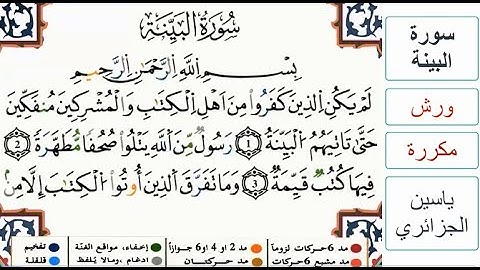 سُورَةُ الْبَيِّنَةِ
بِسْمِ اللَّهِ الرَّحْمَٰنِ الرَّحِيمِ
لَمْ يَكُنِ الذِينَ كَفَرُوا مِنَ اَهْلِ الْكِتَٰبِ وَالْمُشْرِكِينَ مُنفَكِّينَ
حَتَّىٰ تَاتِيَهُمُ الْبَيِّنَةُ 1 رَسُولٌ مِّنَ اللَّهِ يَتْلُوا صُحُفاً مُّطَهَّرَةً 2
فِيهَا كُتُبٌ قَيِّمَةٌ 3 وَمَا تَفَرَّقَ الذِينَ أُوتُوا الْكِتَٰبَ إِلَّا مِنۢ
سورة
البينة
ورش
مكررة
ياسين
الجزائري
مد 6 حركات لزوماً
مد 2 او 4 او 6 جوازاً
إخفاء، مواقع الغنّة
تفخيم
مد مشبع 6 حركات
مد حركتان
ادغام، ومالا يُلفظ
قلقلة